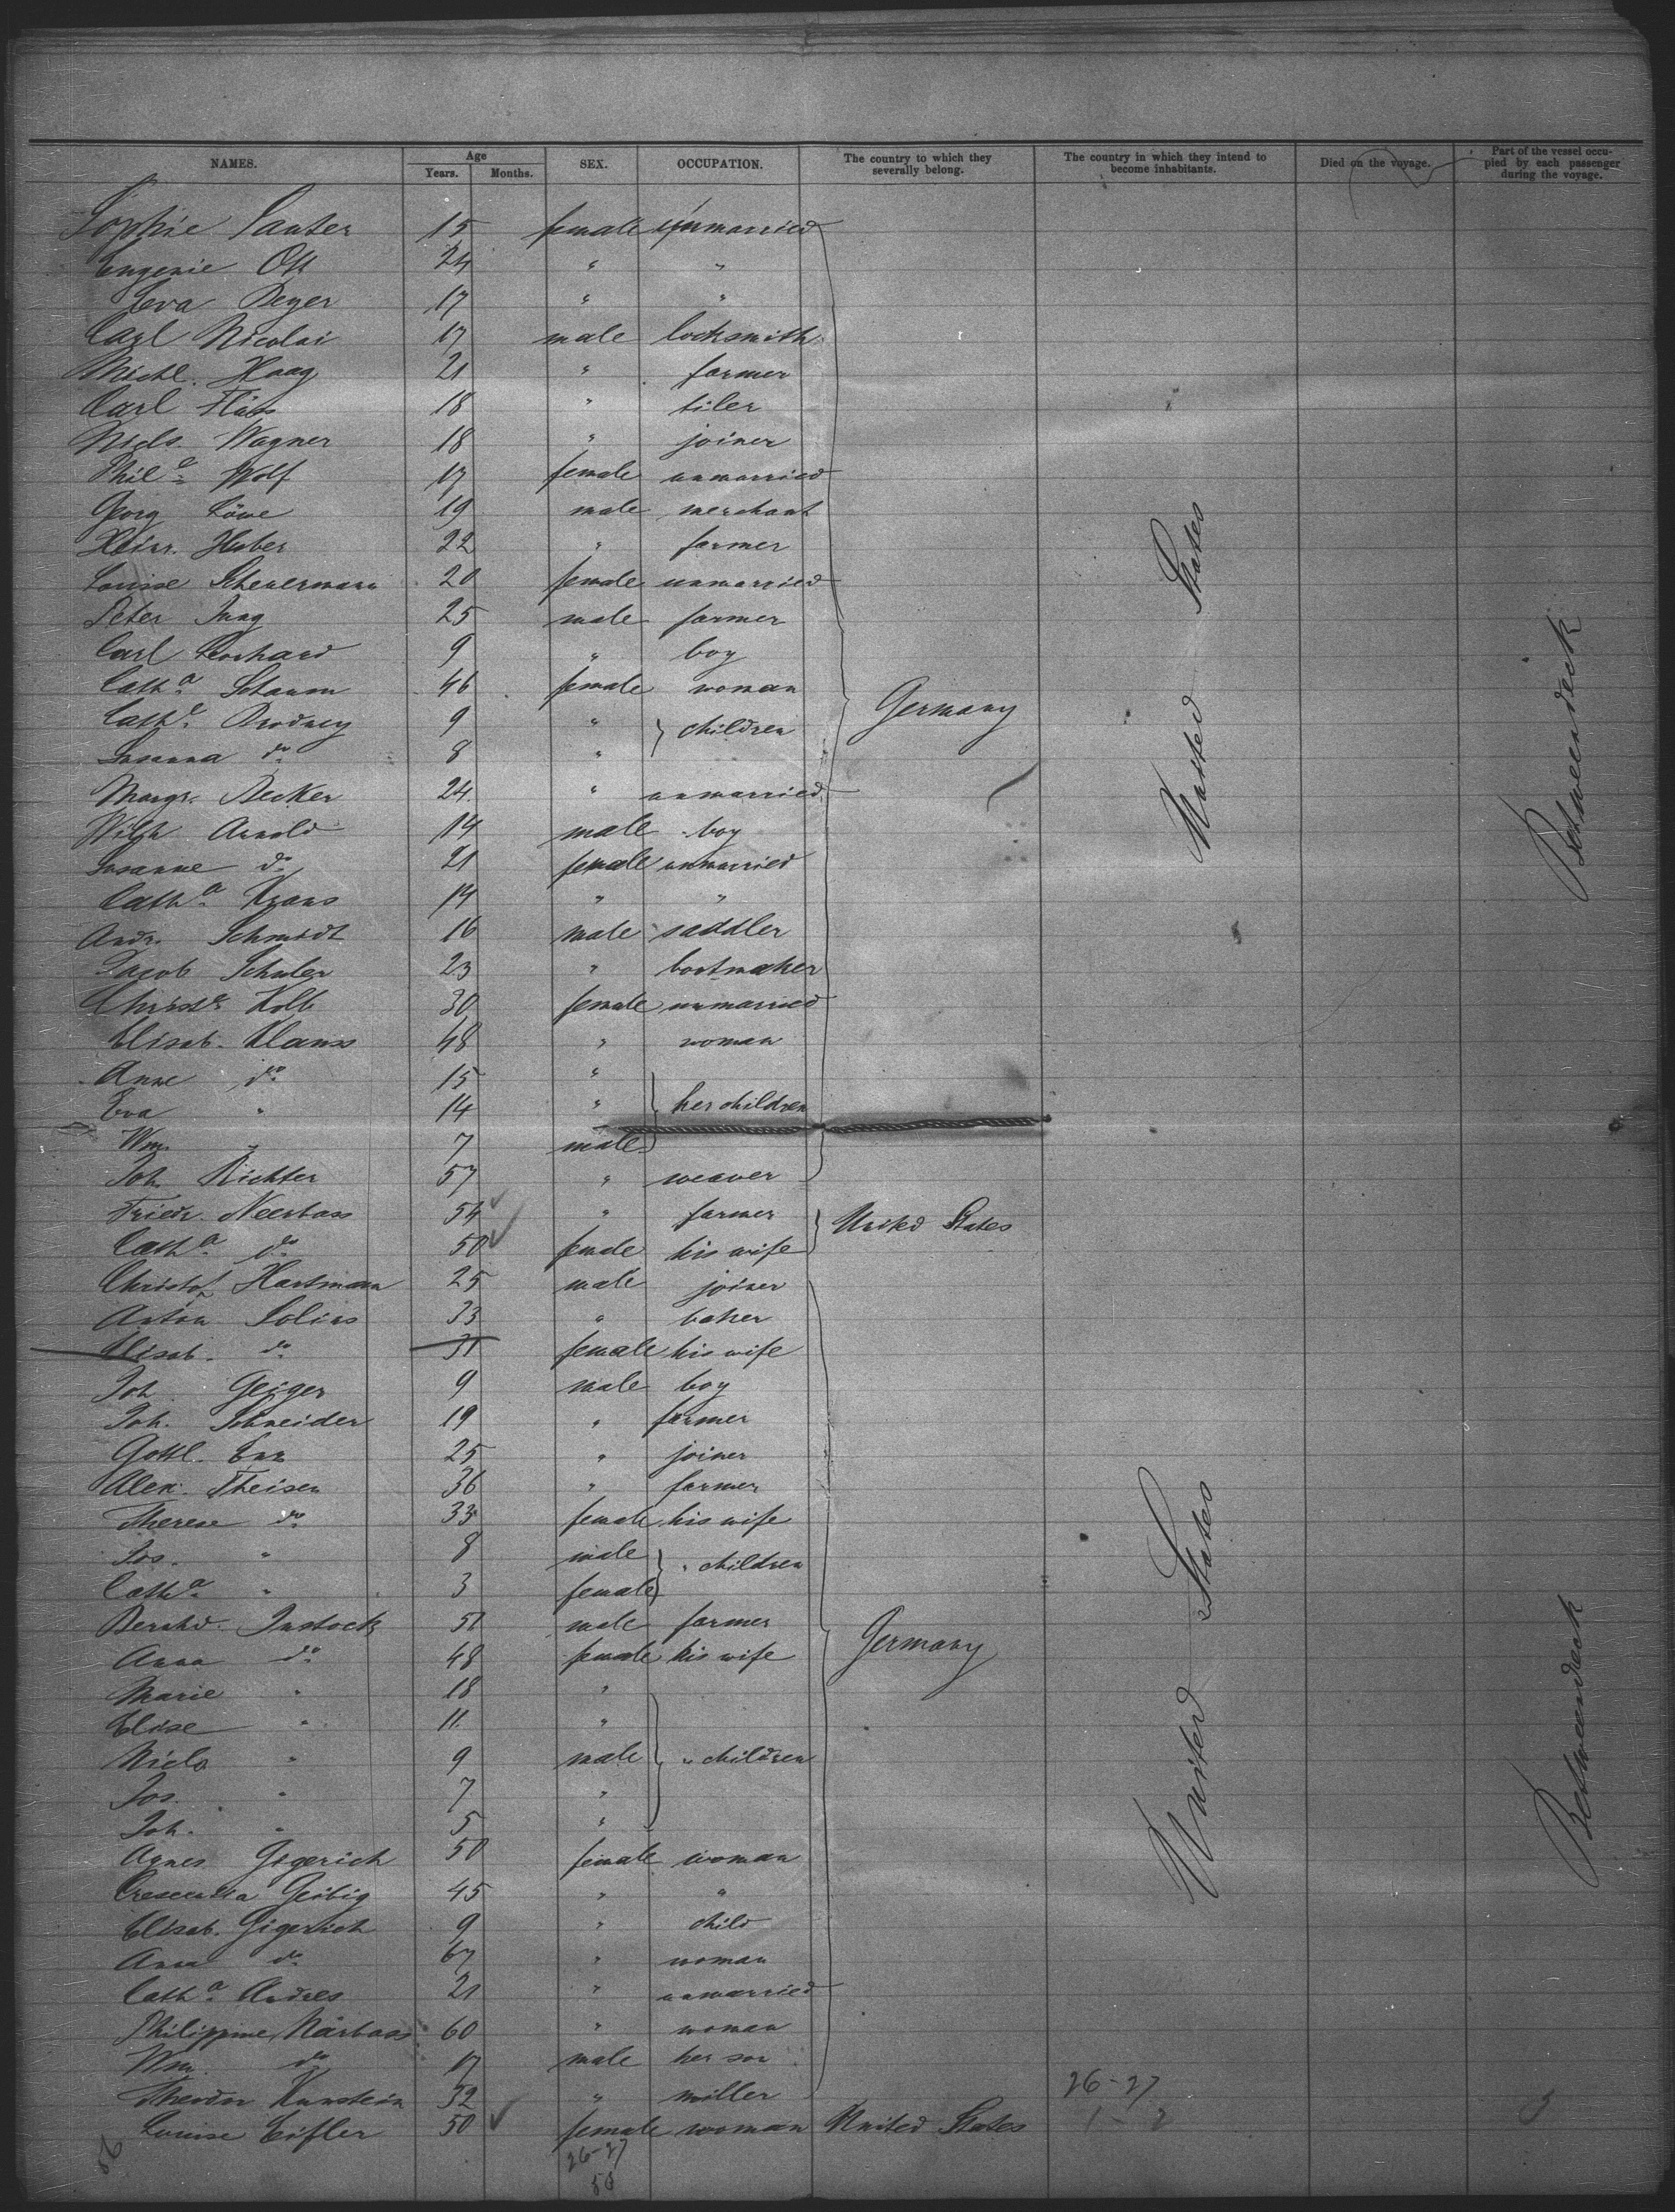 NAMES. Age Years. Months. SEX. OCCUPATION. The country to which they severally belong. The country in which they intend to become inhabitants. Died on the voyage. Part of the vessel occupied by each passenger during the voyage.
Sophie Sauter 15 female unmarried
Eugenie Ott 24 " "
Eva Beyer 17 " "
Carl Nicolai 17 male locksmith
Michl. Haag 21 " farmer
Carl 18 " tiler
Nicls. Wagner 18 " joiner
Phil.e Wolf 17 female unmarried
Georg Löwe 19 male merchant
Heinr. Huber 22 " farmer
Louise Scheuermann 20 female unmarried
Peter Jung 25 male farmer
Carl 9 " boy
Cath.a Schaum 46 female woman Germany
Cath.e 9 " children
Susanna do 8 "
Margr. Becker 24 " unmarried
Wilh. Arnold 14 male boy
Susanne do 21 female unmarried
Cath.a Kraus 14 " "
Andr. Schmidt 16 male saddler
Jacob Schuler 23 " bootmaker
Christ.e Kolb 30 female unmarried
Elisab. Klauss 48 " woman
Anne do 15 "
Eva " 14 " her children
Wm. " 7 male
Joh. Richter 57 " weaver
Friedr. Neerbass 54 " farmer United States
Cath.a do 50 female his wife
Christof Hartmann 25 male joiner
Anton Solins 33 " baker
Elisab. do 31 female his wife
Joh. Geiger 9 male boy
Joh. Schneider 19 " farmer
Gottl. Enz 25 " joiner
Alex. Theisen 36 " farmer
Therese do 33 female his wife
Jos. " 8 male " children
Cath.a " 3 female
Bernhd. Instock 51 male farmer
Anna do 48 female his wife Germany
Marie " 18 "
Elise " 11 "
Nicls " 9 male " children
Jos. " 7 "
Joh. " 5 "
Agnes Gigerich 50 female woman
Crescentia Geibig 45 " "
Elisab. Gigerich 9 " child
Anna do 67 " woman
Cath.a Andres 21 " unmarried
Philippine Närbass 60 " woman
Wm. do 17 male her son
Theodor Kunstein 32 " miller
Louise Eifler 50 female woman United States
26-27
1 - 2
26-27
United States
Betweendeck
United States
Betweendeck